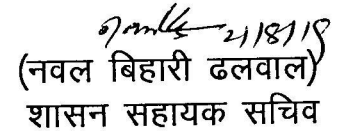 21/8/19
(नवल बिहारी ढलवाल)
शासन सहायक सचिव